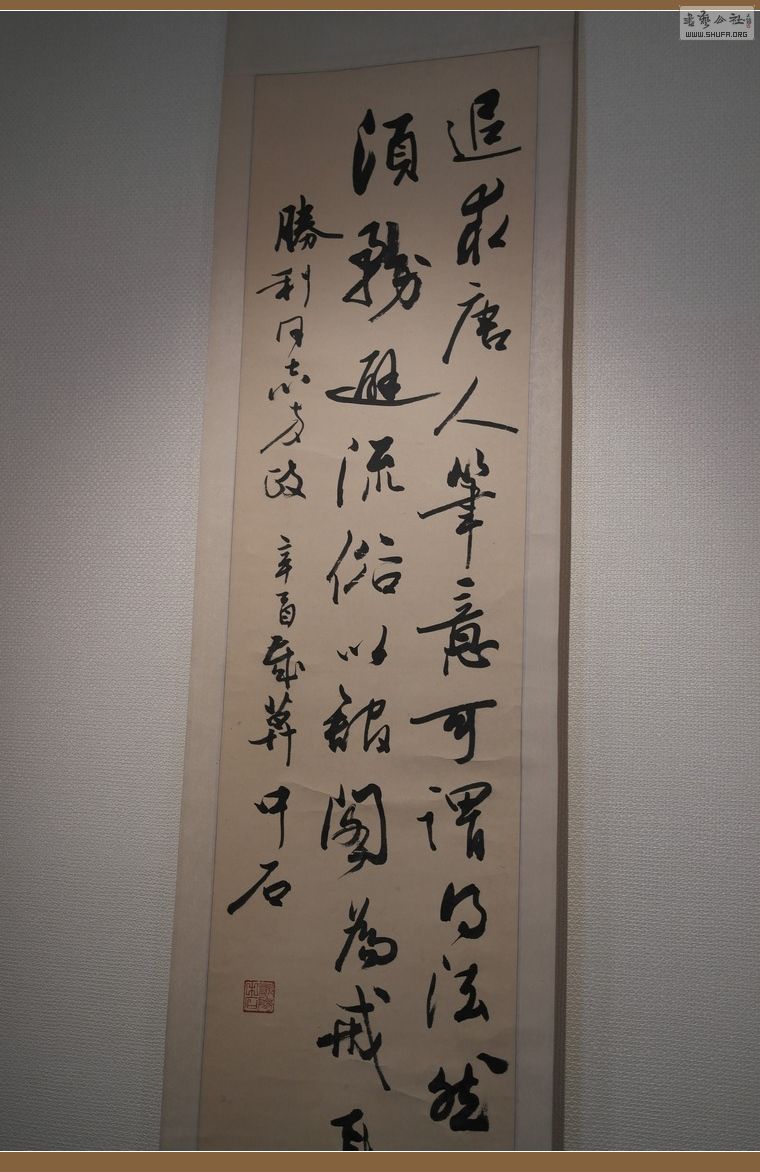 追求唐人筆意可謂得法然
須務避流俗以館閣為戒
勝利同志方政 辛酉歲莫 中石
書藝公社
WWW.SHUFA.ORG